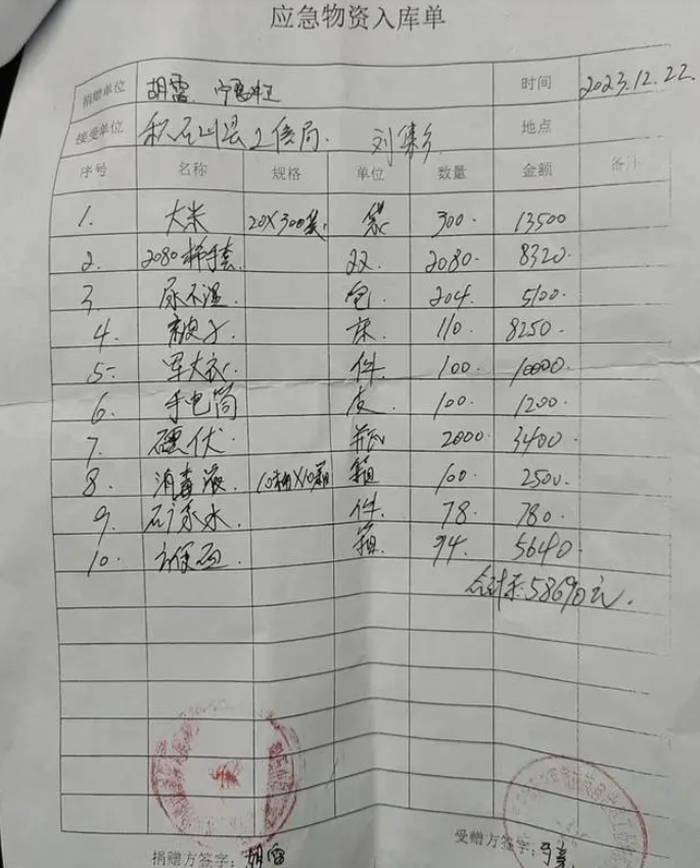 应急物资入库单
捐赠单位 胡雷 时间 2023.12.22.
接受单位 积石山县工信局. 刘集乡 地点
序号 名称 规格 单位 数量 金额 备注
1. 大米 20X300袋. 袋 300. 13500
2. 2080棉手套. 双. 2080. 8320.
3. 尿不湿. 包. 204. 5100.
4. 被子. 床. 110. 8250.
5. 军大衣. 件. 100. 10000.
6. 手电筒 100. 1200.
7. 碘伏. 瓶. 2000. 3400.
8. 消毒液. 箱 100. 2500.
9. 矿泉水. 件. 78. 780.
10. 方便面. 箱. 94. 5640.
合计: 58690元.
捐赠方签字: 胡雷
受赠方签字: